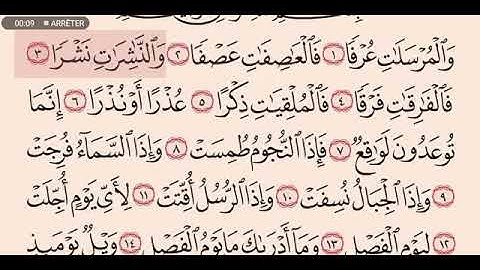 00:09 ■ ARRÊTER
وَالْمُرْسَلَاتِ عُرْفًا ١ فَالْعَاصِفَاتِ عَصْفًا ٢ وَالنَّاشِرَاتِ نَشْرًا ٣
فَالْفَارِقَاتِ فَرْقًا ٤ فَالْمُلْقِيَاتِ ذِكْرًا ٥ عُذْرًا أَوْ نُذْرًا ٦ إِنَّمَا
تُوعَدُونَ لَوَاقِعٌ ٧ فَإِذَا النُّجُومُ طُمِسَتْ ٨ وَإِذَا السَّمَاءُ فُرِجَتْ
٩ وَإِذَا الْجِبَالُ نُسِفَتْ ١٠ وَإِذَا الرُّسُلُ أُقِّتَتْ ١١ لِأَيِّ يَوْمٍ أُجِّلَتْ
١٢ لِيَوْمِ الْفَصْلِ ١٣ وَمَا أَدْرَىٰكَ مَا يَوْمُ الْفَصْلِ ١٤ وَيْلٌ يَوْمَئِذٍ